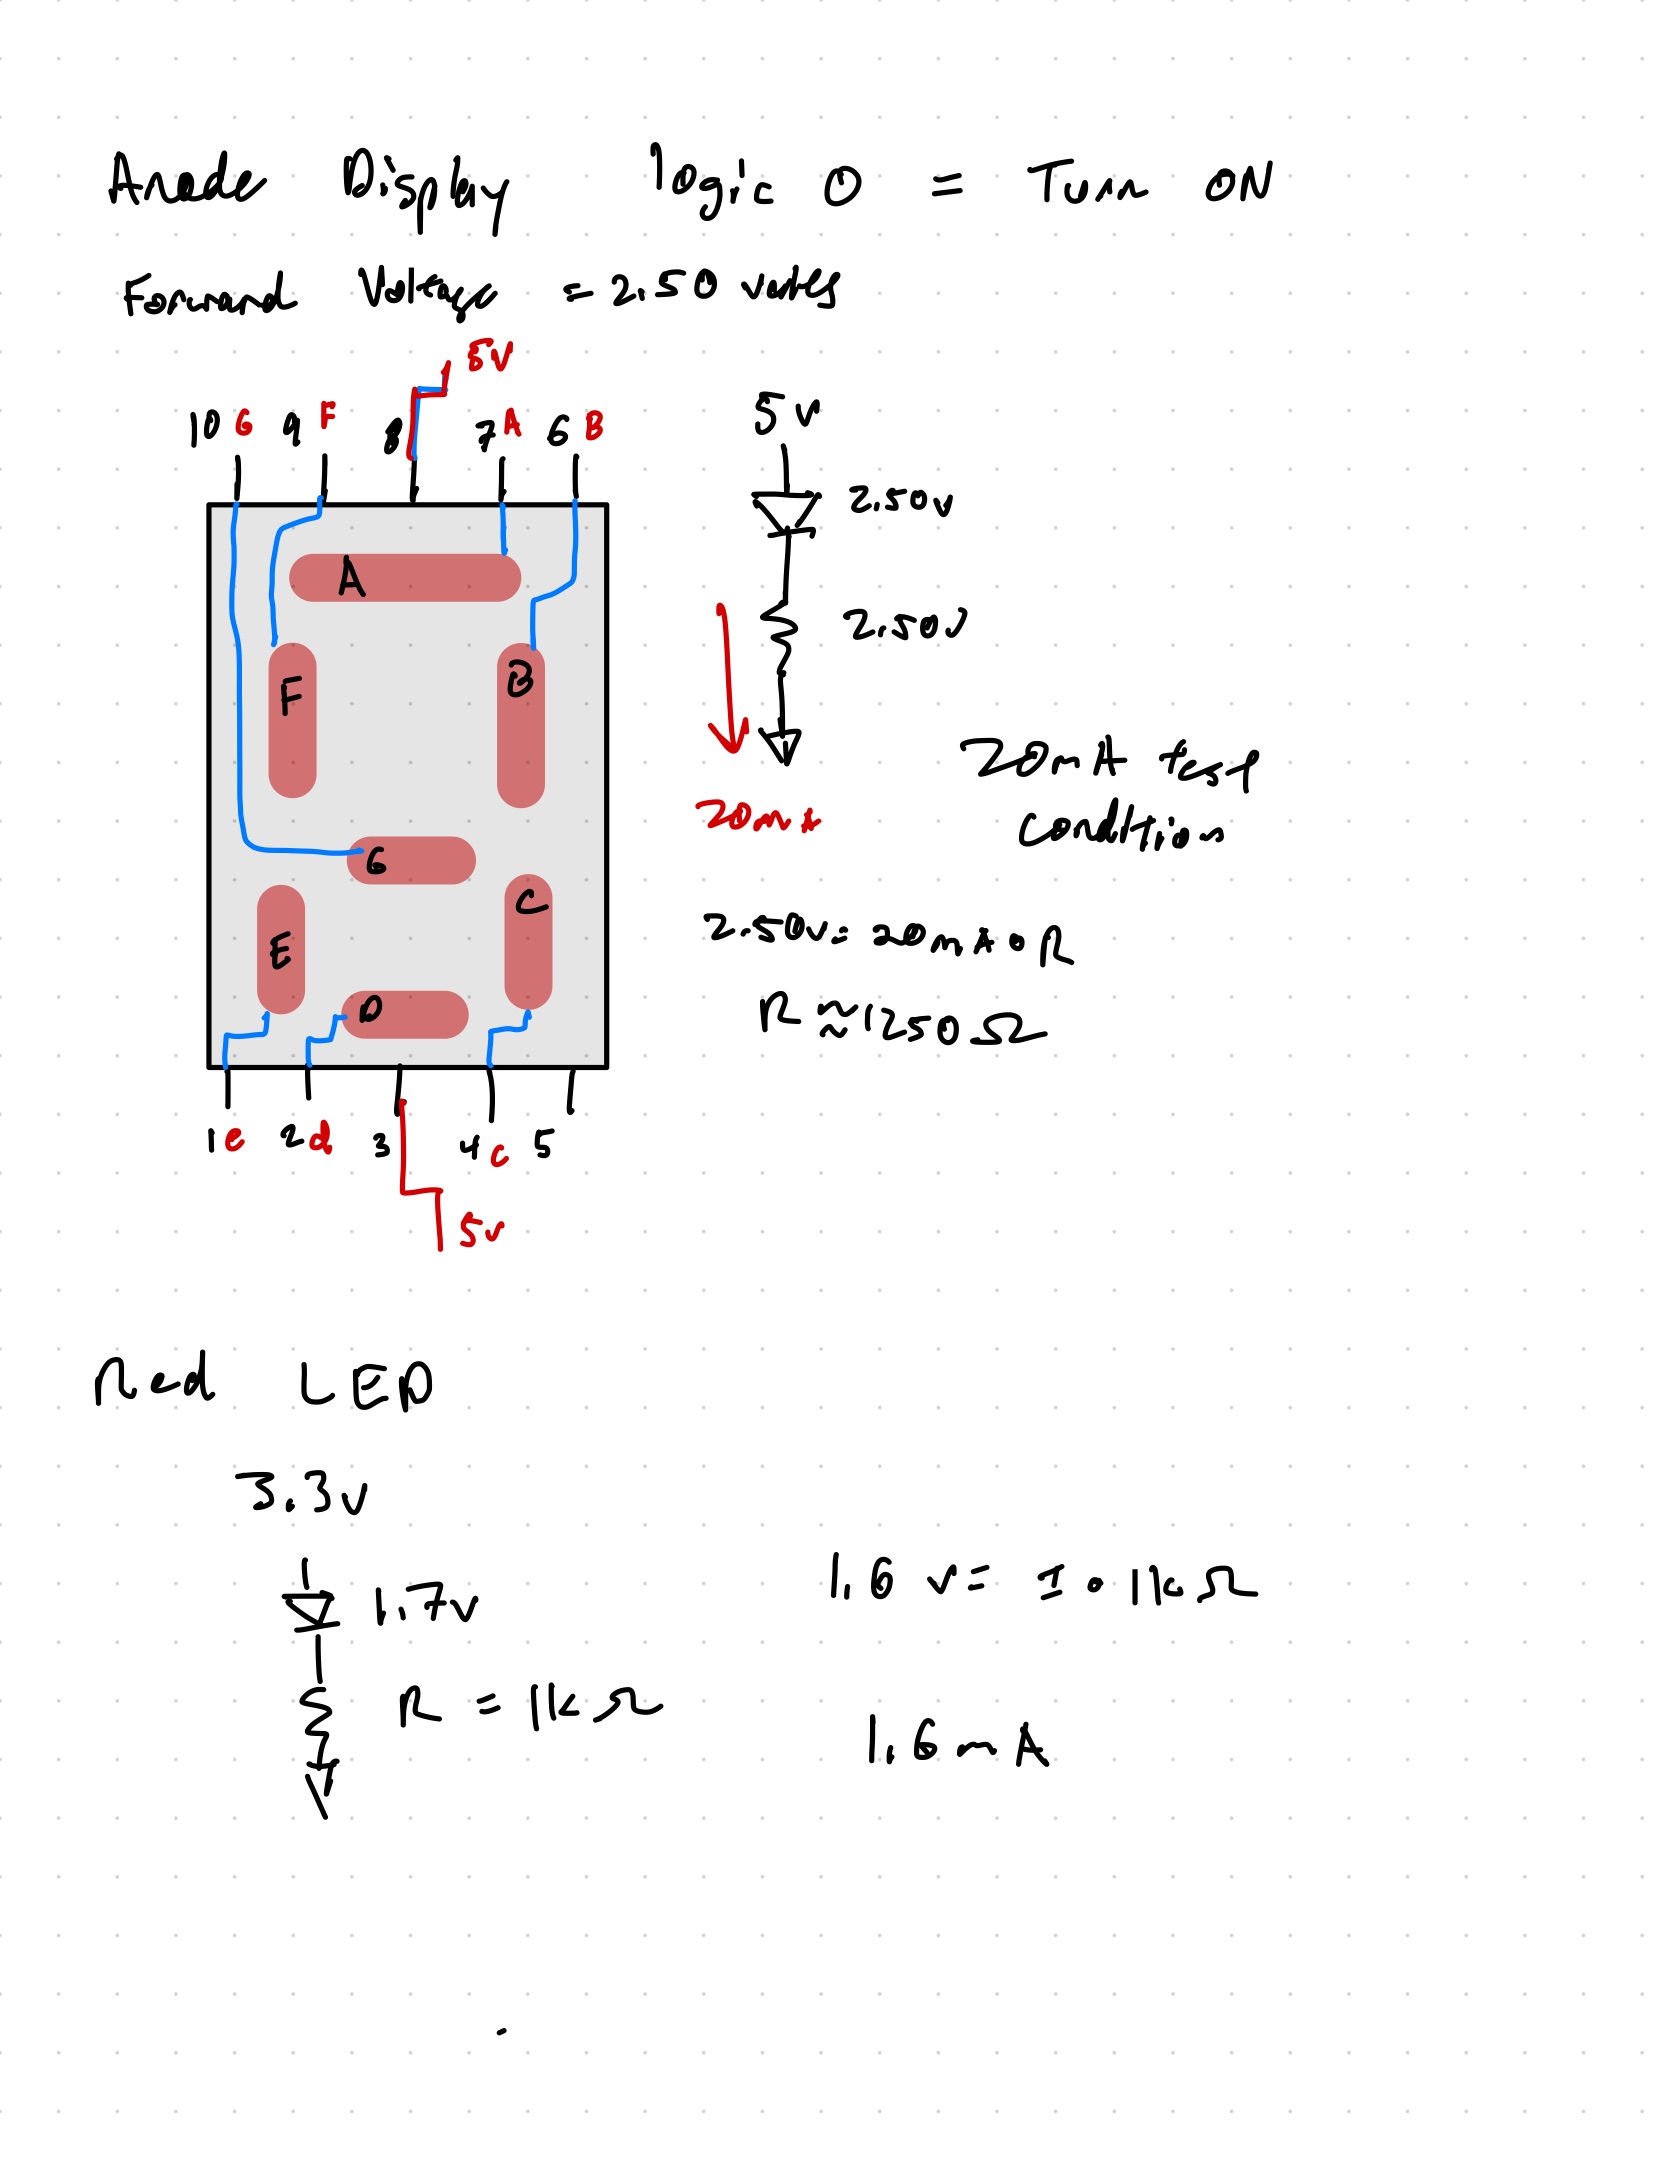 Anode Display logic 0 = Turn ON
Forward Voltage = 2.50 volts
5V
10 G 9 F 8 7 A 6 B
A
F B
G
C
E
D
1 e 2 d 3 4 c 5
5v
5 v
2.50v
2.50V
20mA
20mA test
condition
2.50v = 20mA • R
R ≈ 1250 Ω
Red LED
3.3v
1.7v
R = 1k Ω
1.6 v = I • 1k Ω
1.6 mA